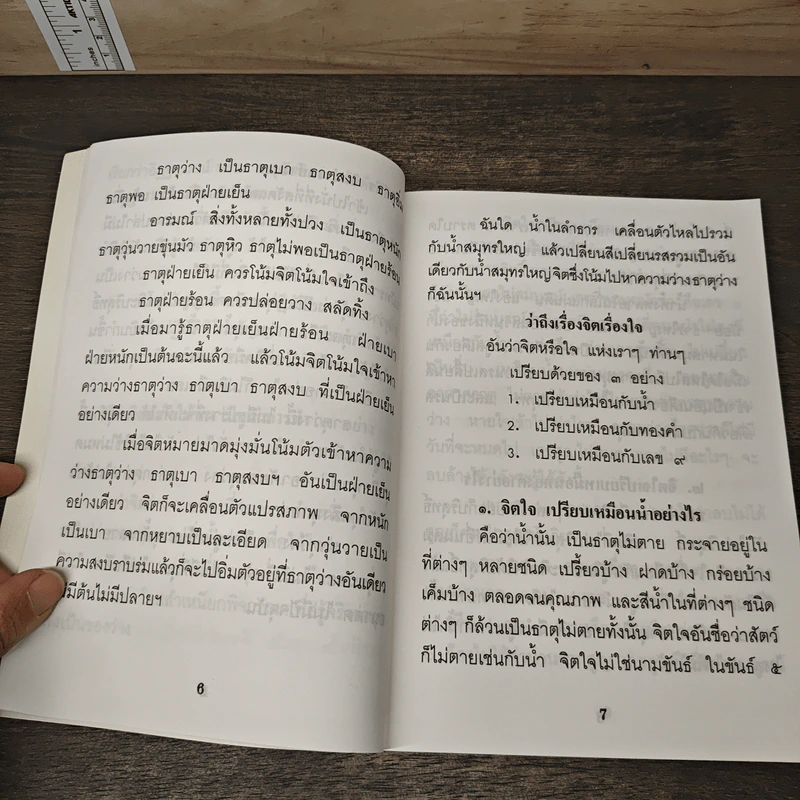 ธาตุว่าง เป็นธาตุเบา ธาตุสงบ ธาตุอิ่ม
ธาตุพอ เป็นธาตุฝ่ายเย็น
อารมณ์ สิ่งทั้งหลายทั้งปวง เป็นธาตุหนัก
ธาตุวุ่นวายขุ่นมัว ธาตุหิว ธาตุไม่พอเป็นธาตุฝ่ายร้อน
ธาตุฝ่ายเย็น ควรโน้มจิตโน้มใจเข้าถึง
ธาตุฝ่ายร้อน ควรปล่อยวาง สลัดทิ้ง
เมื่อมารู้ธาตุฝ่ายเย็นฝ่ายร้อน ฝ่ายเบา
ฝ่ายหนักเป็นต้นฉะนี้แล้ว แล้วโน้มจิตโน้มใจเข้าหา
ความว่างธาตุว่าง ธาตุเบา ธาตุสงบ ที่เป็นฝ่ายเย็น
อย่างเดียว
เมื่อจิตหมายมาดมุ่งมั่นโน้มตัวเข้าหาความ
ว่างธาตุว่าง ธาตุเบา ธาตุสงบฯ อันเป็นฝ่ายเย็น
อย่างเดียว จิตก็จะเคลื่อนตัวแปรสภาพ จากหนัก
เป็นเบา จากหยาบเป็นละเอียด จากวุ่นวายเป็น
ความสงบราบร่มแล้วก็จะไปอิ่มตัวอยู่ที่ธาตุว่างอันเดียว
มีต้นไม่มีปลายฯ
6
ฉันใด น้ำในลำธาร เคลื่อนตัวไหลไปรวม
กับน้ำสมุทรใหญ่ แล้วเปลี่ยนสีเปลี่ยนรสรวมเป็นอัน
เดียวกับน้ำสมุทรใหญ่จิตซึ่งโน้มไปหาความว่างธาตุว่าง
ก็ฉันนั้นฯ
ว่าถึงเรื่องจิตเรื่องใจ
อันว่าจิตหรือใจ แห่งเราๆ ท่านๆ
เปรียบด้วยของ ๓ อย่าง
1. เปรียบเหมือนกับน้ำ
2. เปรียบเหมือนกับทองคำ
3. เปรียบเหมือนกับเลข ๙
๑. จิตใจ เปรียบเหมือนน้ำอย่างไร
คือว่าน้ำนั้น เป็นธาตุไม่ตาย กระจายอยู่ใน
ที่ต่างๆ หลายชนิด เปรี้ยวบ้าง ฝาดบ้าง กร่อยบ้าง
เค็มบ้าง ตลอดจนคุณภาพ และสีน้ำในที่ต่างๆ ชนิด
ต่างๆ ก็ล้วนเป็นธาตุไม่ตายทั้งนั้น จิตใจอันชื่อว่าสัตว์
ก็ไม่ตายเช่นกับน้ำ จิตใจไม่ใช่นามขันธ์ ในขันธ์ ๕
7
inches